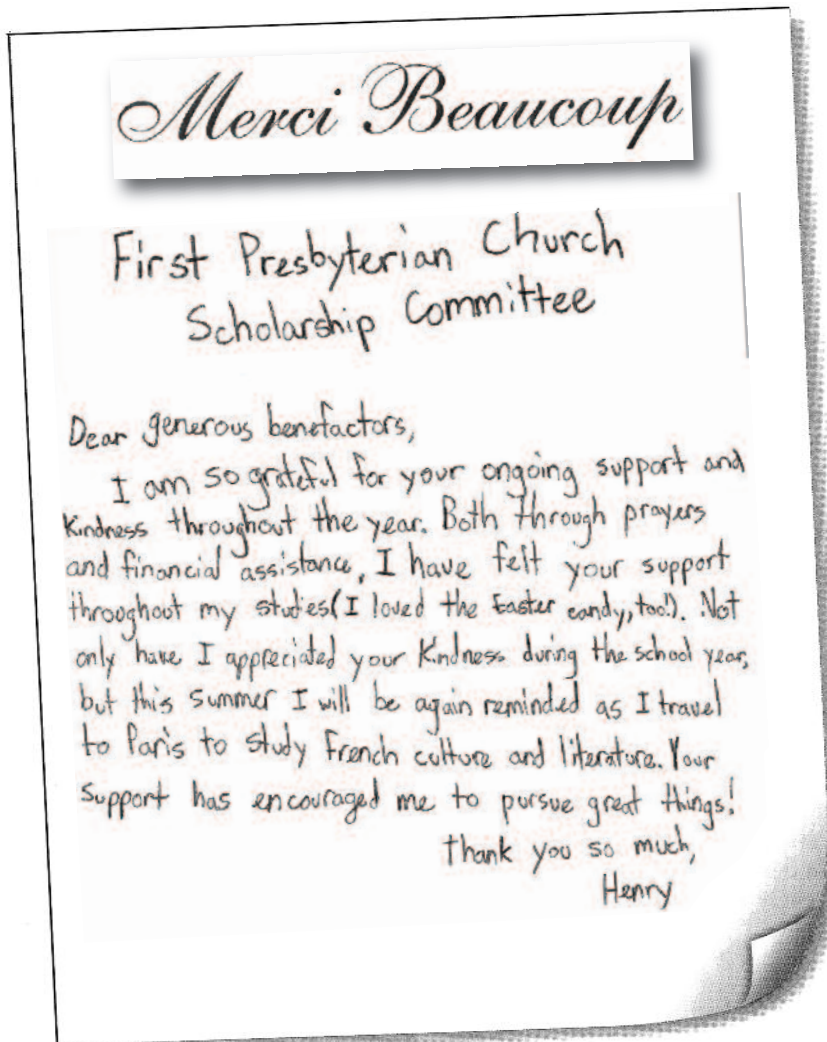 Merci Beaucoup
First Presbyterian Church
Scholarship Committee
Dear generous benefactors,
I am so grateful for your ongoing support and
Kindness throughout the year. Both through prayers
and financial assistance, I have felt your support
throughout my studies (I loved the Easter candy, too!). Not
only have I appreciated your Kindness during the school year,
but this summer I will be again reminded as I travel
to Paris to study French culture and literature. Your
Support has encouraged me to pursue great things!
Thank you so much,
Henry